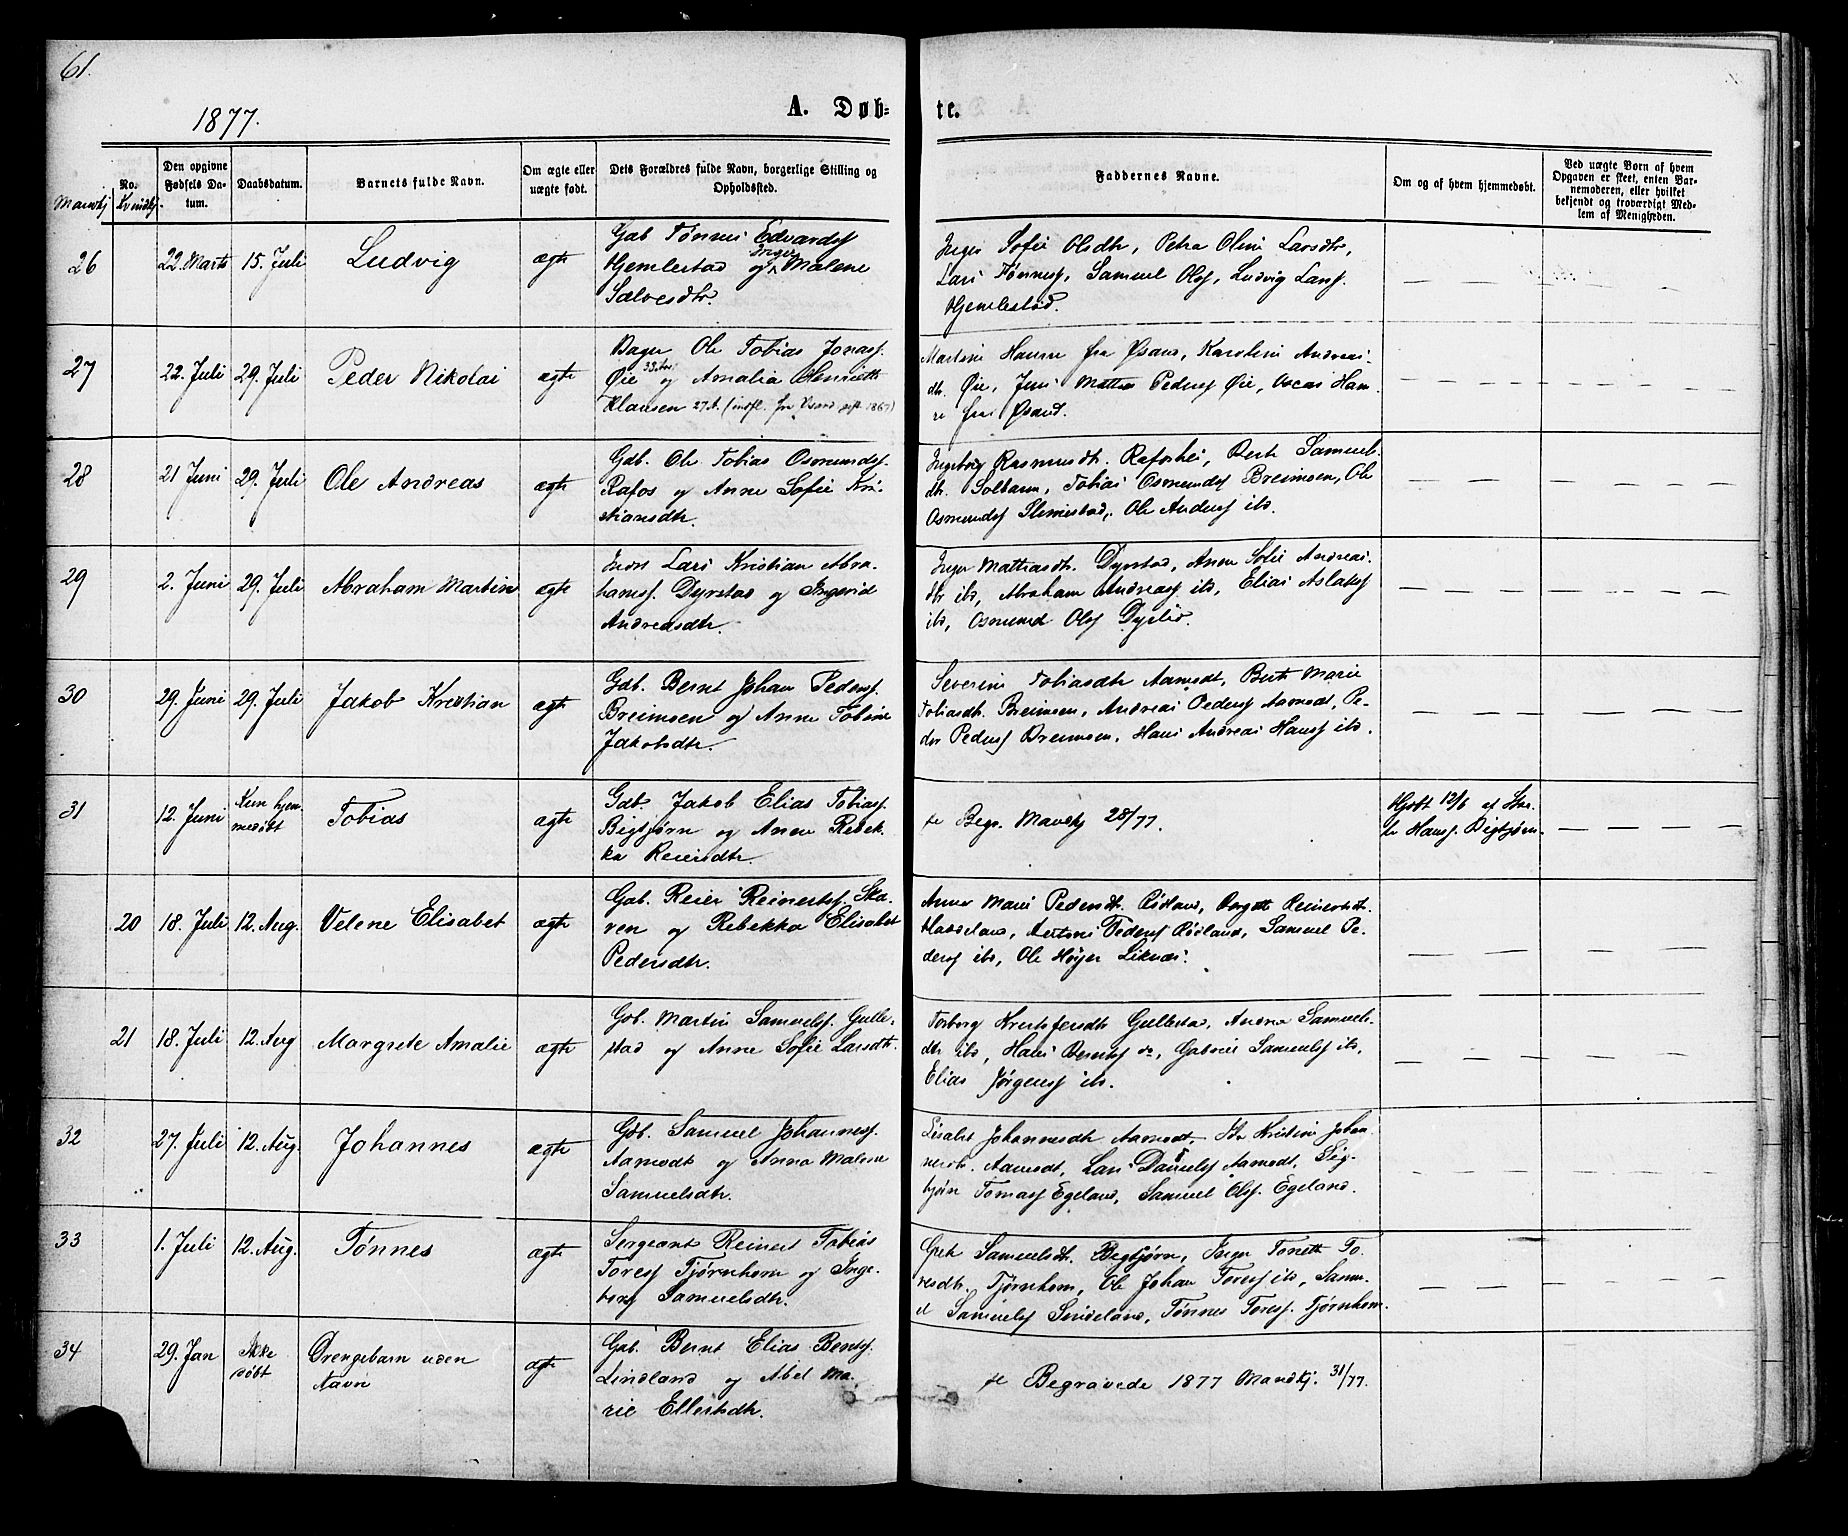 61.
1877.
A. Døb-
te.
No.
Mandkj. Kvindkj.
Den opgivne Fødsels Datum.
Daabsdatum.
Barnets fulde Navn.
Om ægte eller uægte født.
Dets Forældres fulde Navn, borgerlige Stilling og Opholdssted.
Faddernes Navne.
Om og af hvem hjemmedøbt.
Ved uægte Børn af hvem Opgaven er skeet, enten Barnemoderen, eller hvilket bekjendt og troværdigt Medlem af Menigheden.
26 22. Marts 15. Juli Ludvig ægte
Gab Tønnes Edvardsf
Hjemlestad og Inger Malene
Salvesdtr.
Inger Sofie Olsdtr, Petra Oline Larsdtr,
Lars Tønnesf, Samuel Olsf, Ludvig Larsf.
Hjemlestad.
27 22. Juli 29. Juli Peder Nikolai ægte
Bager Ole Tobias Jonasf.
Øie 33 Aar og Amalia Henriette
Klausen 27 A. (indfl. fra Øsand gift 1867)
Martine Hansen fra Øsand, Karoline Andreas-
dtr. Øie, Jens Mathias Pedersf Øie, Oscar Han-
sen fra Øsand.
28 21 Juni 29. Juli Ole Andreas ægte
Gdb. Ole Tobias Osmundsf.
Rafos og Anne Sofie Kri-
stiansdtr.
Ingeborg Rasmusdtr. Rafoshei, Berte Samuels-
dtr. Solbaren, Tobias Osmundsf Breimoen, Ole
Osmundsf Slimestad, Ole Andersf ibd.
29 2. Juni 29. Juli Abraham Martin ægte
Inds Lars Kristian Abra-
hamsf. Dyrstad og Ingerid
Andreasdtr.
Inger Mathiasdtr. Dyrstad, Anne Sofie Andreas-
dtr ibd, Abraham Andreasf ibd, Elias Aslaksf
ibd, Osmund Olsf Dyrlid.
30 29. Juni 29. Juli Jakob Kristian ægte
Gdb. Bernt Johan Pedersf.
Breimoen og Anne Tobine
Jakobsdtr.
Severine Tobiasdtr Aamodt, Berte Marie
Tobiasdtr. Breimoen, Andreas Pedersf Aamodt, Pe-
der Pedersf Breimoen, Hans Andreas Hansf ibd.
31 12. Juni Kun hjem-
medøbt Tobias ægte
Gdb. Jakob Elias Tobiasf.
Bigtjørn og Anne Rebek-
ka Reiersdtr.
se Begr. Mandkj 28/77.
Hjdbt 12/6 af
Hansf. Bigtjørn.
20 18. Juli 12. Aug. Velene Elisabet ægte
Gab. Reier Reinertsf. Ska-
ren og Rebekka Elisabet
Pedersdtr.
Anne Marie Pedersdtr. Rødland, Borgitte Reinertsdtr.
Hadeland, Antoni Pedersf Rødland, Samuel Pe-
dersf ibd, Ole Høyer Liknæs.
21 18. Juli 12. Aug Margrete Amalie ægte
Gab. Martin Samuelsf. Gulle-
stad og Anne Sofie Larsdtr.
Torborg Kristofersdtr Gullestad, Andrea Samuels-
dtr ibd, Hans Berntsf do, Gabriel Samuelsf ibd,
Elias Jørgensf ibd.
32 27. Juli 12. Aug. Johannes ægte
Gdb. Samuel Johannesf.
Aamodt og Anna Malene
Samuelsdtr.
Lisabet Johannesdtr Aamodt, Kristine Johan-
nesdtr. Aamodt, Lars Danielsf Aamodt, Sig-
bjørn Tomasf Egeland, Samuel Olsf. Egeland.
33 1. Juli 12. Aug. Tønnes ægte
Sergeant Reinert Tobias
Toresf Tjørnhom og Inge-
borg Samuelsdtr.
Grete Samuelsdtr. Bigtjørn, Inger Tonette To-
resdtr. Tjørnhom, Ole Johan Toresf ibd, Samu-
el Samuelsf Sindeland, Tønnes Toresf. Tjørnhom.
34 29. Jan Ikke
døbt Drengebarn uden
Navn ægte
Gab. Bernt Elias Bentsf.
Lindland og Abel Ma-
rie Ellertsdtr.
se Begravede 1877 Mandkj. 31/77.